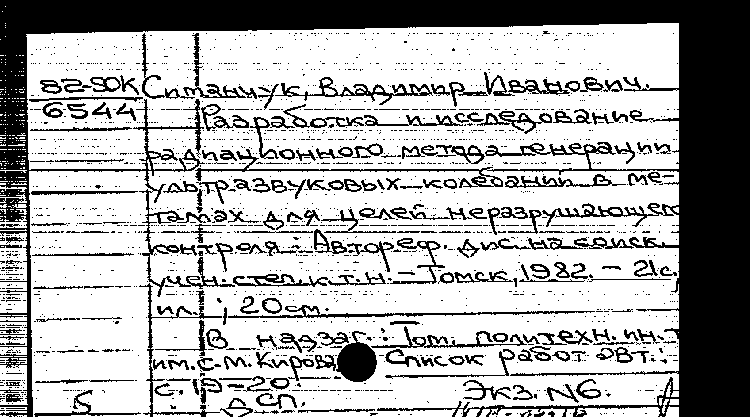 82-SOK Ситанчук, Владимир Иванович.
6544 Разработка и исследование
радиационного метода генерации
ультразвуковых колебаний в ме-
талах для целей неразрушающего
контроля : Автореф. дис. на соиск.
учен. степ. к.т.н. - Томск, 1982. - 21с.,
ил. ; 20см.
В надзаг.: Том. политехн. ин.т
им. С.М. Кирова Список работ авт.:
с. 19-20.
5 ДСП. Экз. N6.